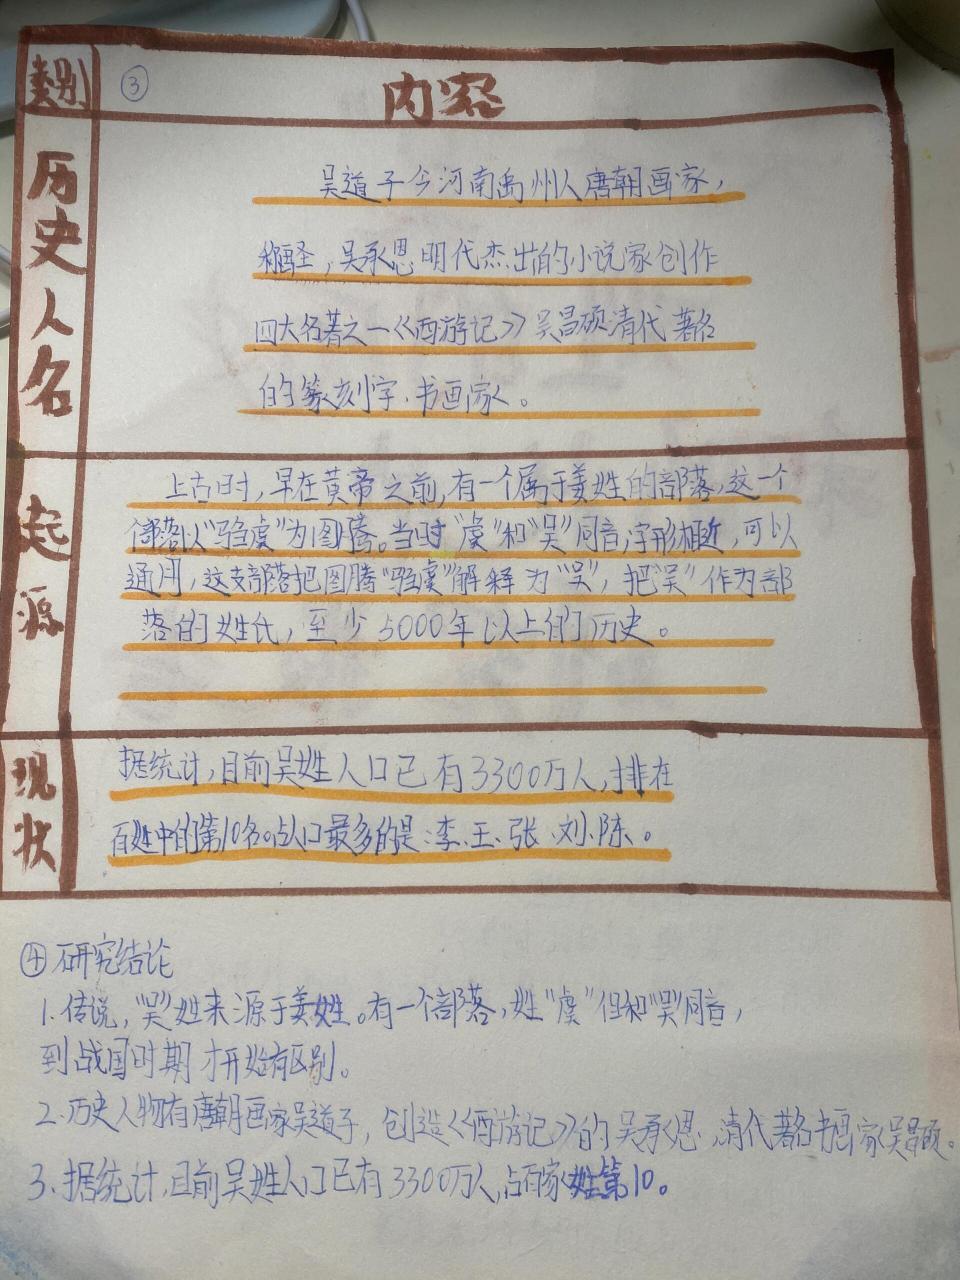 类别
③
内容
历史人名
吴道子今河南禹州人唐朝画家,
称画圣,吴承恩明代杰出的小说家创作
四大名著之一《西游记》吴昌硕清代著名
的篆刻字、书画家。
起源
上古时,早在黄帝之前,有一个属于姜姓的部落,这一个
部落以“驺虞”为图腾。当时“虞”和“吴”同音,字形相近,可以
通用,这支部落把图腾“驺虞”解释为“吴”,把“吴”作为部
落的姓氏,至少5000年以上的历史。
现状
据统计,目前吴姓人口已有3300万人,排在
百姓中的第10名。占人口最多的是:李、王、张、刘、陈。
④研究结论
1.传说,“吴”姓来源于姜姓。有一个部落,姓“虞”但和“吴”同音,
到战国时期才开始有区别。
2.历史人物有唐朝画家吴道子,创造《西游记》的吴承恩,清代著名书画家吴硕。
3.据统计,目前吴姓人口已有3300万人,占百家姓第10。